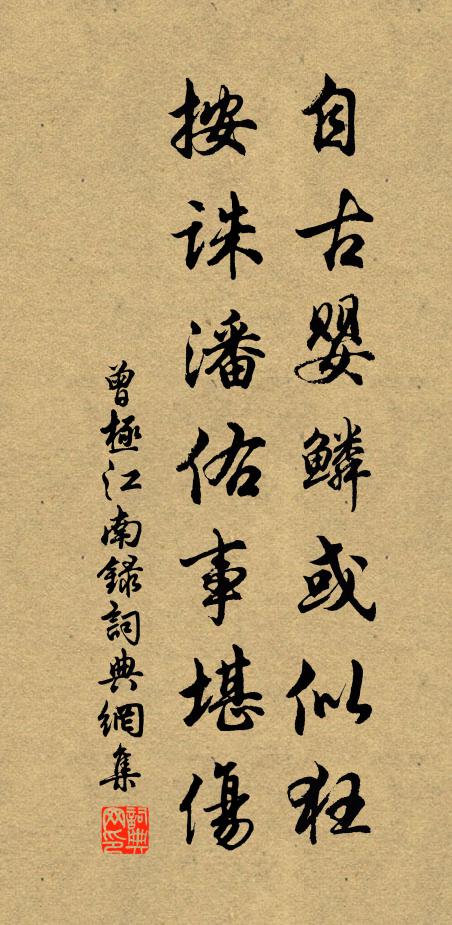 自古嬰鱗或似狂
按誅潘佑事堪傷
曾極江南録詞典網集
詞典網印